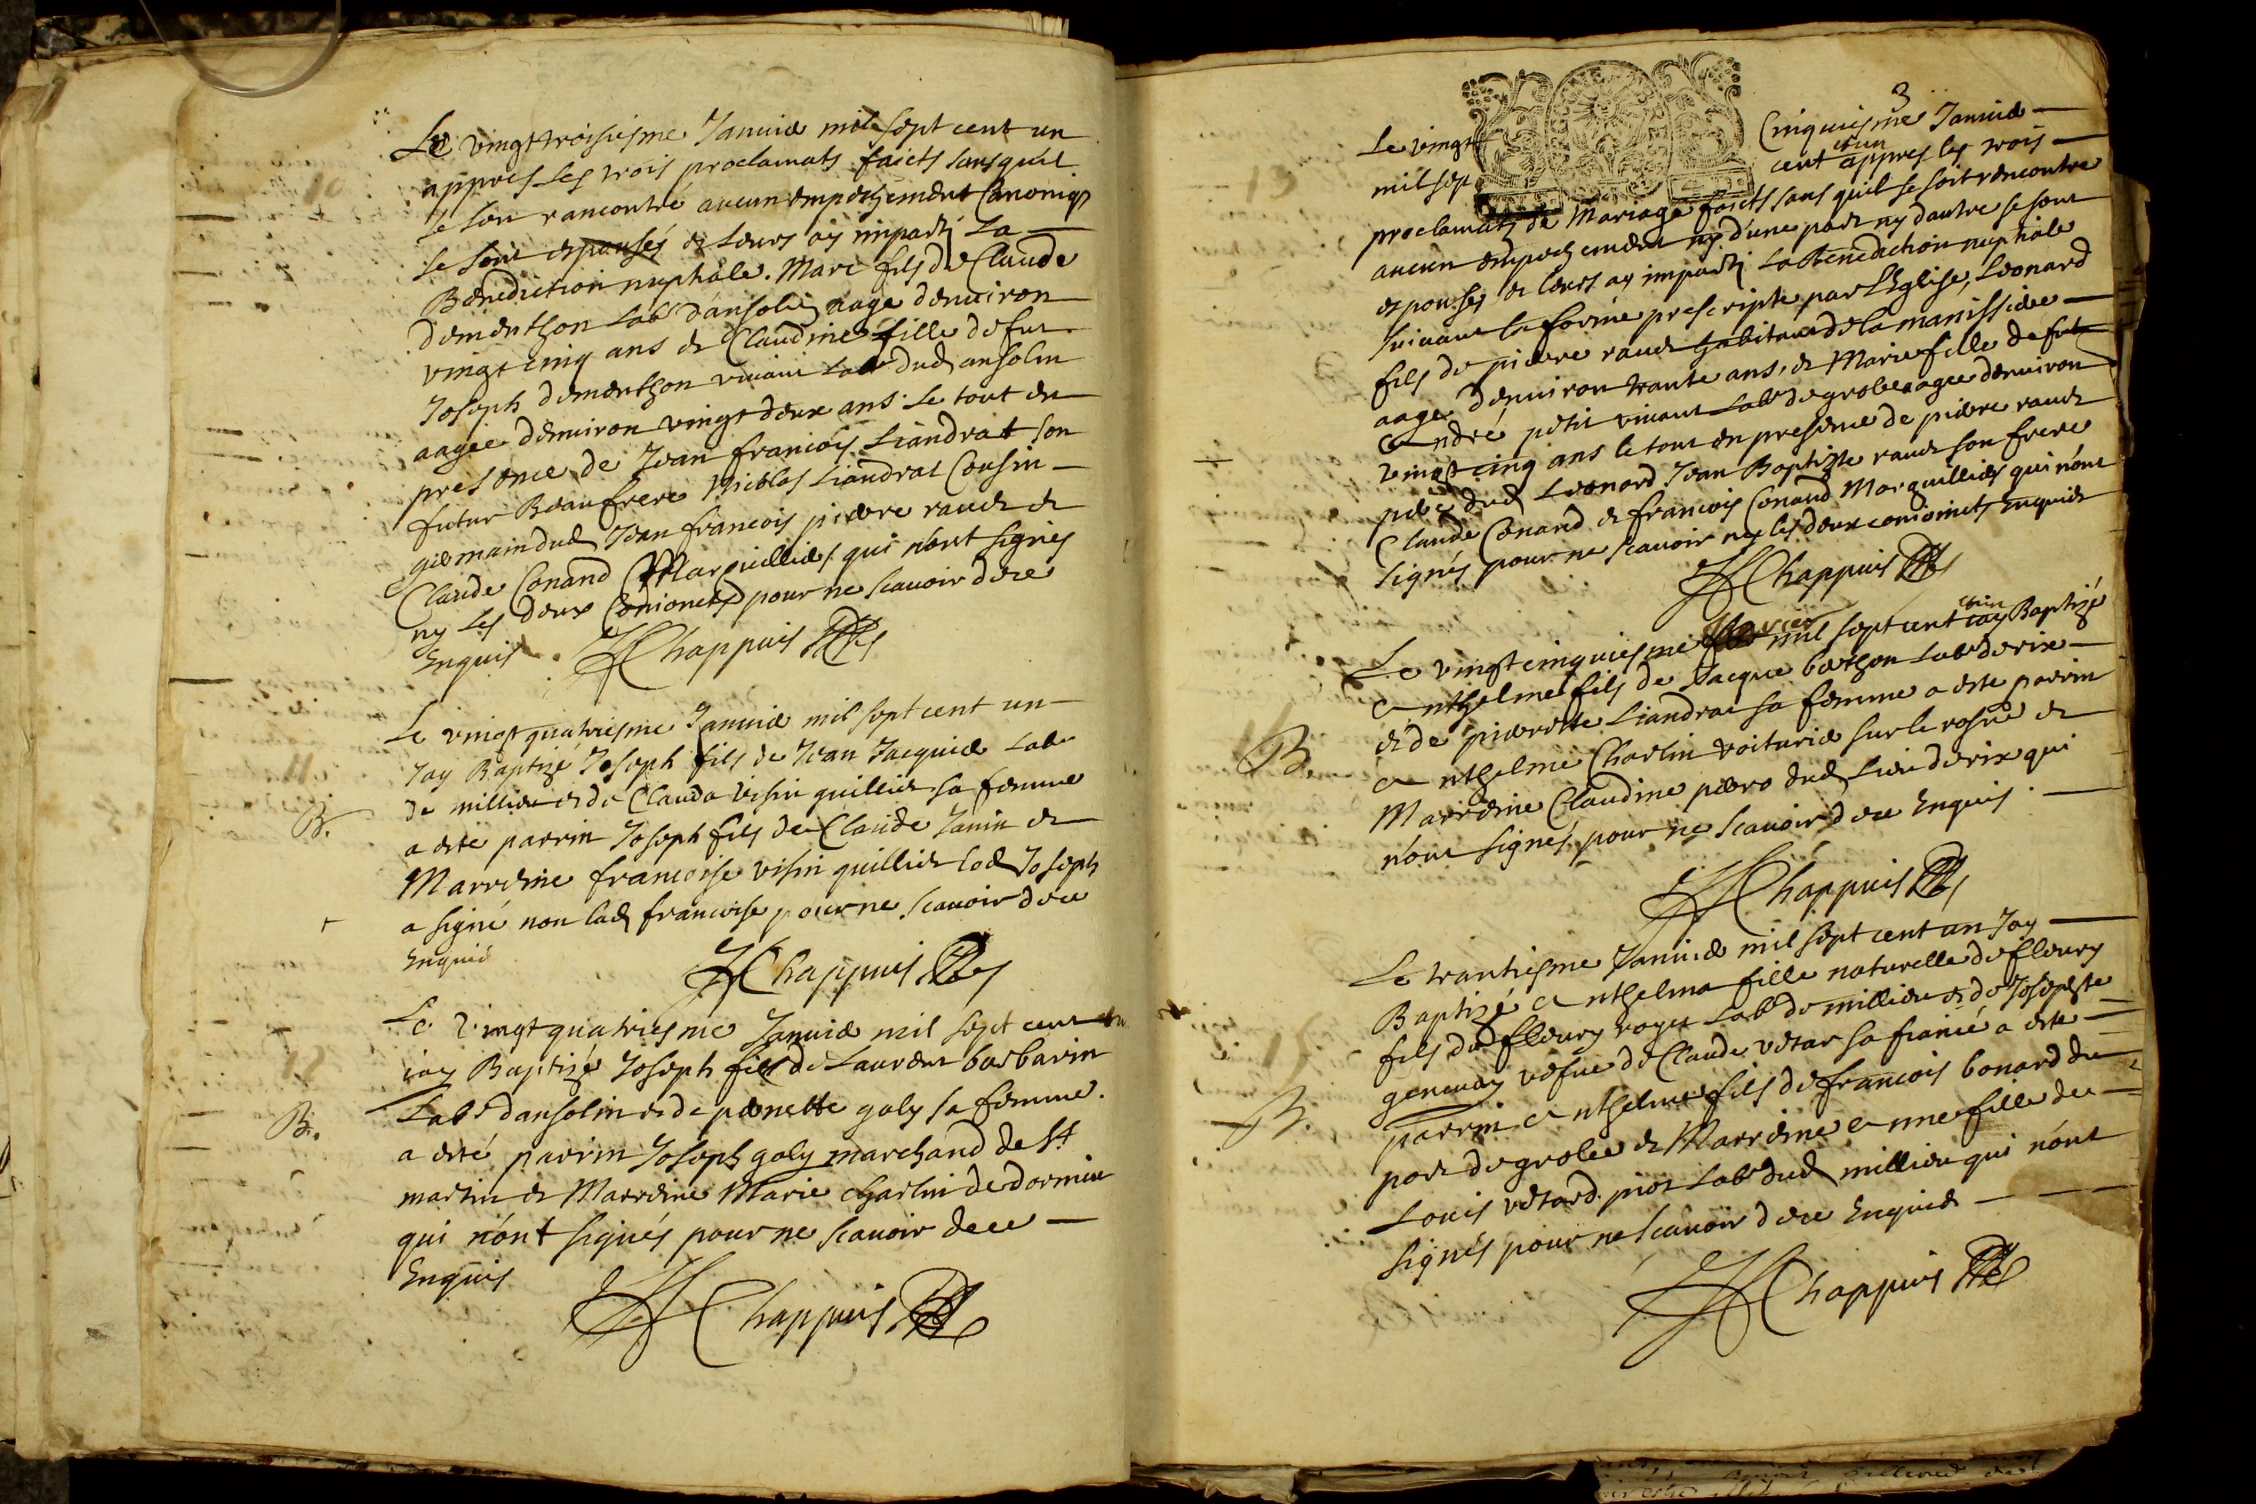 Le vingt troisiesme Januier mil sept cent un
appres les trois proclamats faicts sans quil
se soit rancontré aucun empechement Canoniq
se sont espousés et leurs ay imparti La
Benediction nuptiale. Marc fils de Claude
demerthon Labr dansolin aage denuiron
vingt cinq ans et Claudine fille de fut
Joseph demerthon viuant Labr dud ansolin
aagée denuiron vingt deux ans le tout en
presence de Jean francois Liandrat son
futur Beaufrere Nicolas Liandrat Cousin
germain dud Jean francois pierre raudet
Claude Conand Marguillier qui n'ont signés
ny Les deux Conionets pour ne scauoir de ce
Enquis HChappuis
Le vingt quatriesme Januier mil sept cent un
Jay Baptizé Joseph fils de Jean Jacquier Labr
de millieu et de Clauda visin quilliet sa femme
B.
a esté parrin Joseph fils de Claude Janin et
Marreine francoise visin quilliet led Joseph
a signé non lad francoise pour ne scauoir de ce
Enquis
HChappuis
Le vingt quatriesme Januier mil sept cent un
iay Baptizé Joseph fils de Laurent barbarin
Labr dansolin et de pernette galy sa femme.
B.
a esté parrin Joseph galy marchand de St
martin et Marreine Marie charlin de dormieu
qui n'ont signés pour ne scauoir de ce
Enquis
HChappuis
3
Le vingt Cinquiesme Januier
mil sept cent et un appres les trois
proclamats de Mariage faicts sans quil se soit rencontré
aucun empechement ny d'une part ny dautre se sont
espousés et leurs ay imparti La Benediction nuptiale
suiuant la forme prescripte par L'Eglise, Leonard
fils de pierre raudet habitant de la manissiere
aage denuiron trante ans, et Marie fille de fut
André petit viuant Labr de grolee aagée denuiron
vingt cinq ans le tout en presence de pierre raudet
père dud Leonard Jean Baptiste raudet son frere
Claude Conand et francois Conand Marguilliers qui n'ont
signés pour ne scauoir ny les deux conioinets Enquis
HChappuis
Le vingt cinquiesme Januier mil sept cent et un iay Baptizé
Anthelme fils de Jacque berthon Labr de rix
et de pierrette Liandrat sa femme a esté parrin
B.
Anthelme Charlin voiturier sur le rosne et
Marreine Claudine pero dud Lieu de rix qui
n'ont signés pour ne scauoir de ce Enquis.
HChappuis
Le trantiesme Januier mil sept cent un Jay
Baptizé Anthelma fille naturelle de fleury
fils de fleury roger Labr de millieu et de Josephte
geneuay vefue de Claude vetar sa fiancé a esté
B.
parrin Anthelme fils de francois bonard du
port de grolee et Marreine Anne fille de
Louis vetard piot Labr dud millieu qui n'ont
signés pour ne scauoir de ce Enquis
HChappuis